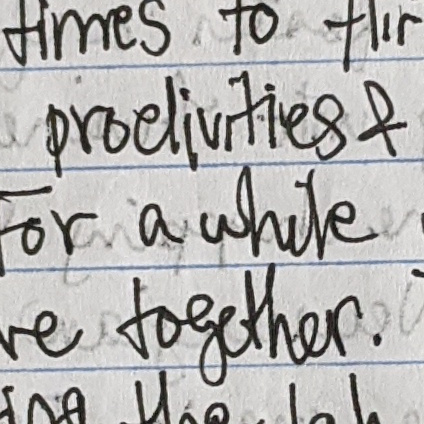 times to flir
proclivities &
For a while
ve together.
ing the lab